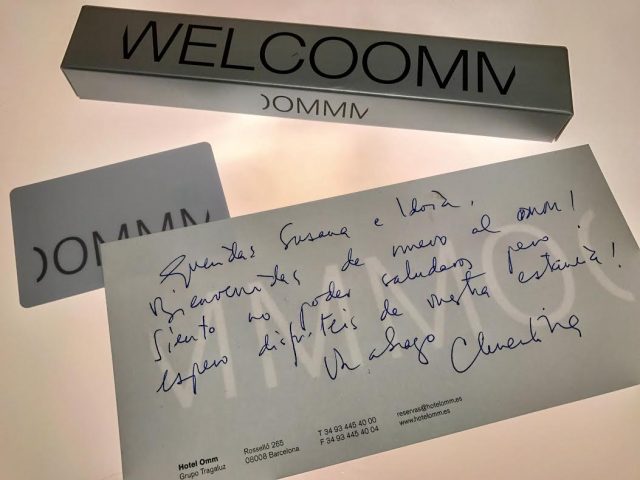 WELCOOMM
OMMM
OMMM
Queridas Susana e Idoia,
Bienvenidas de nuevo al omm!
Siento no poder saludaros pero
espero disfrutéis de vuestra estancia!
Un abrazo Clementina
MMMO
Hotel Omm
Grupo Tragaluz
Rosselló 265
08008 Barcelona
T 34 93 445 40 00
F 34 93 445 40 04
reservas@hotelomm.es
www.hotelomm.es